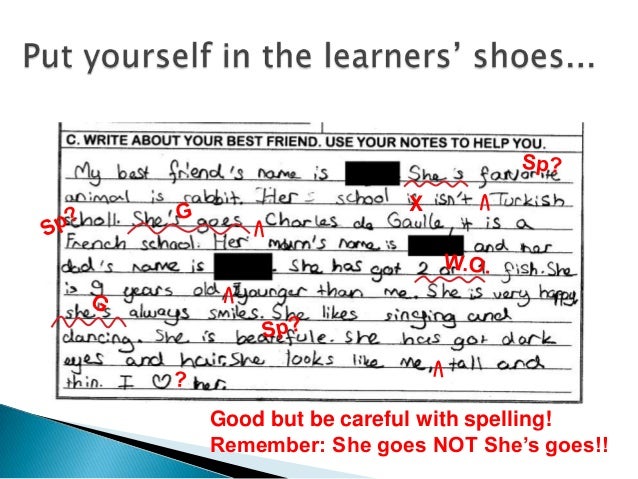 Put yourself in the learners' shoes...
C. WRITE ABOUT YOUR BEST FRIEND. USE YOUR NOTES TO HELP YOU.
Sp?
My best friend's name is She's farvorite
animal is rabbit. Her school is isn't Turkish
X
Λ
Sp?
G
scholl. She's goes Charles de Gaulle, it is a
Λ
French school. Her mum's name is and her
W.O.
dad's name is . She has got 2 or 3 fish. She
is 9 years old younger than me. She is very happy
Λ
G
she's always smiles. She likes singing and
Sp?
dancing. She is beatefule. She has got dark
eyes and hair. She looks like me, tall and
Λ
thin. I ♡ her.
?
Good but be careful with spelling!
Remember: She goes NOT She's goes!!